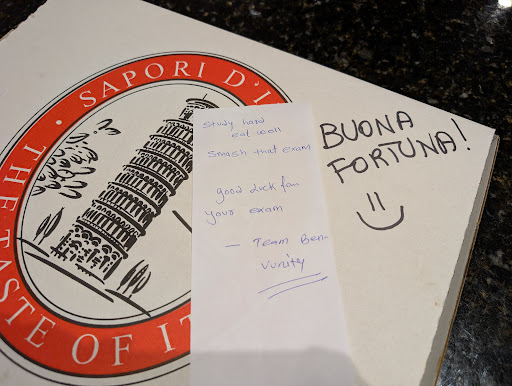 SAPORI D'I
THE TASTE OF IT
study hard
eat well
smash that exam
good luck for
your exam
— Team Ben-
vunity
BUONA
FORTUNA!